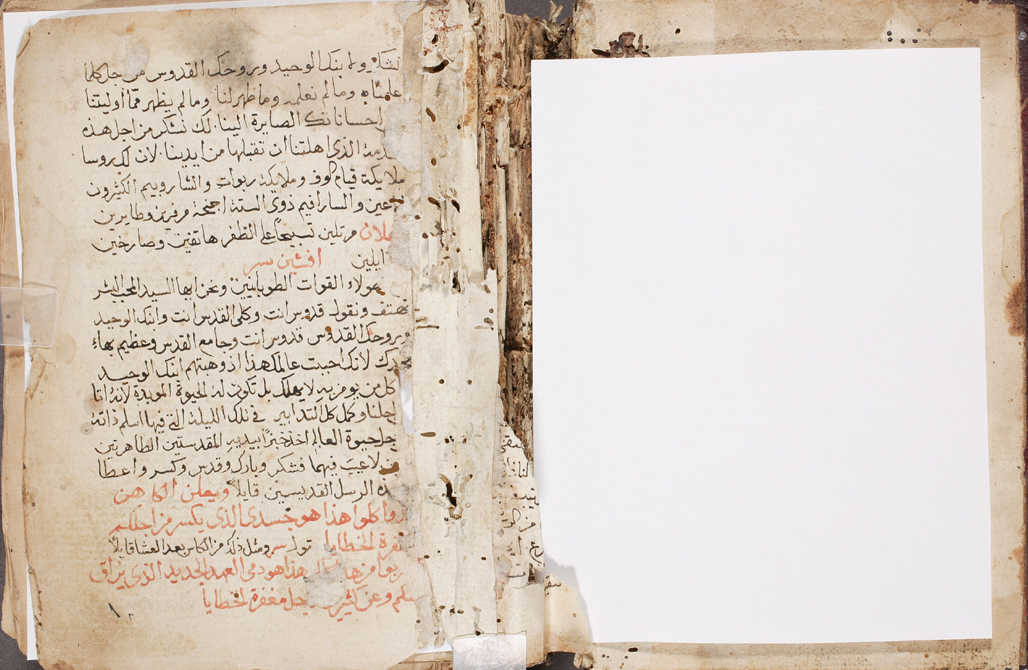 ولابنك الوحيد وبروحك القدوس من جل كلما
علمناه ومالم نعلمه وماظهر لنا وما لم يظهر مما اوليتنا
احساناتك الصايرة الينا. لك نشكر من اجل هذه
الذي اهلتنا ان تقبلها من ايدينا. لان لك روسا
ملايكة قيام الوف وملايكة ربوات والشاروبيم الكثيرون
والسارافيم ذوي الستة اجنحة مرفرفين وطايرين
مرتلين تسبيحا على الظفر هاتفين وصارخين
ايلين افشين سر
هولاء القوات الطوبانيين ونحن ايها السيد المحب البشر
نهتف ونقول قدوس انت وكلي القدس انت وابنك الوحيد
وبروحك القدوس قدوس انت وجامع القدس وعظيم بهاء
لانك احببت عالمك هذا اذ وهبتهم ابنك الوحيد
كل من يومن به لا يهلك بل تكون له الحيوة الموبدة لانه اتا
اجلنا وكمل كل التدابير في تلك الليلة التي فيها اسلم ذاته
جل حيوة العالم اخذ خبزا بيديه المقدستين الطاهرتين
لاعيب فيهما فشكر وبارك وقدس وكسر واعطا
الرسل القديسين قايلا ويعلن الكاهن
كلوا هذا هو جسدي الذي يكسر من اجلكم
لمغفرة الخطايا تول سر ومثل ذلك من الكاس بعد العشا قايلا
هذا هو دمي العهد الجديد الذي يهراق
وعن كثير جل مغفرة الخطايا